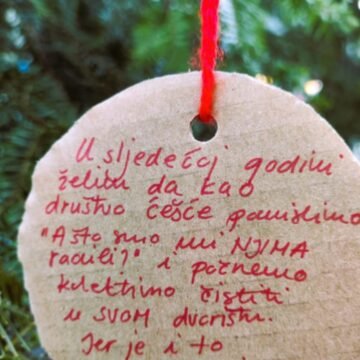 U sljedećoj godini
želim da kao
društvo češće pomislimo
"A što smo mi NJIMA
radili?" i počnemo
kolektivno čistiti
u SVOM dvorištu.
Jer je i to